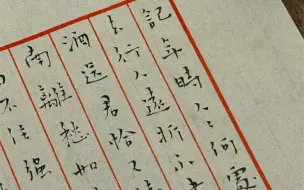 記年時人人何處
去行人遠折不
酒送君恰又
南離愁如
不住强